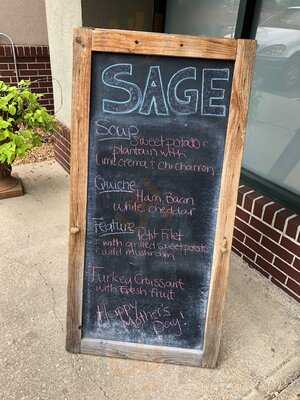 SAGE
Soup Sweet potato &
plantain with
lime crema & Chicharron
Quiche Ham, Bacon
white cheddar
Feature Petit Filet
with grilled sweet potato
& wild mushroom
Turkey Croissant
with Fresh fruit
Happy
Mother's
Day!